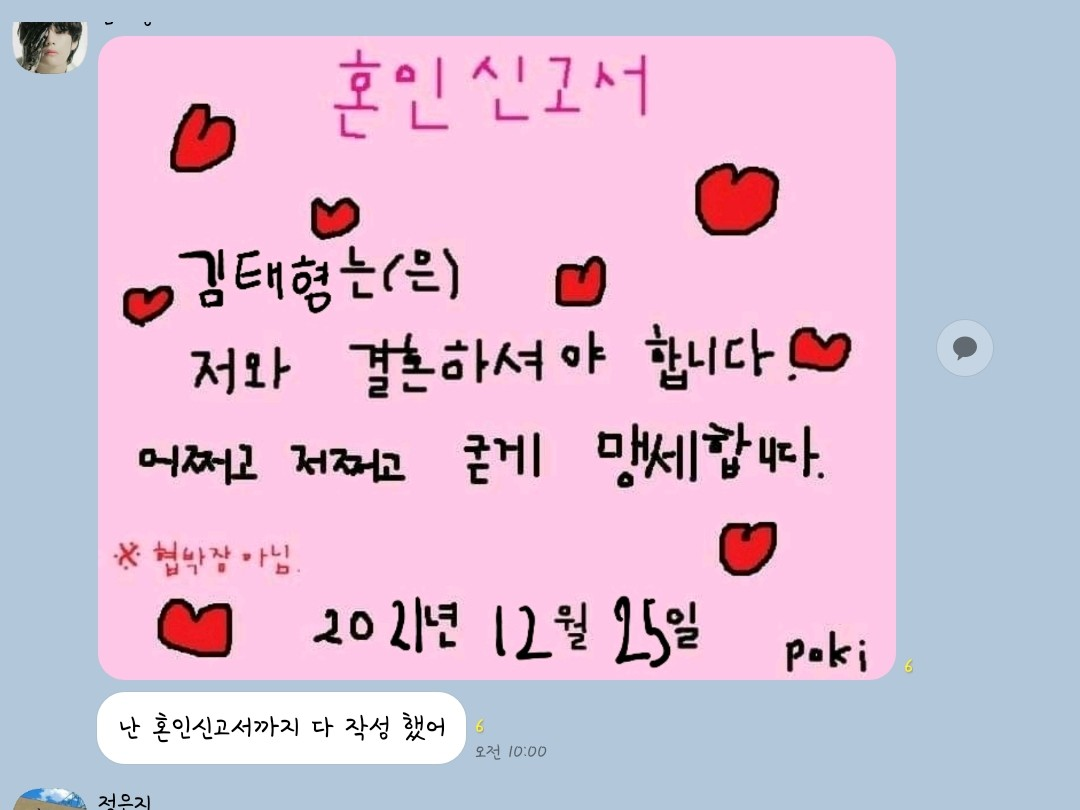 혼인신고서
김태형는(은)
저와 결혼하셔야 합니다.
어쩌고 저쩌고 굳게 맹세합니다.
※ 협박장 아님.
2021년 12월 25일
poki
6
난 혼인신고서까지 다 작성 했어
6
오전 10:00
정은지